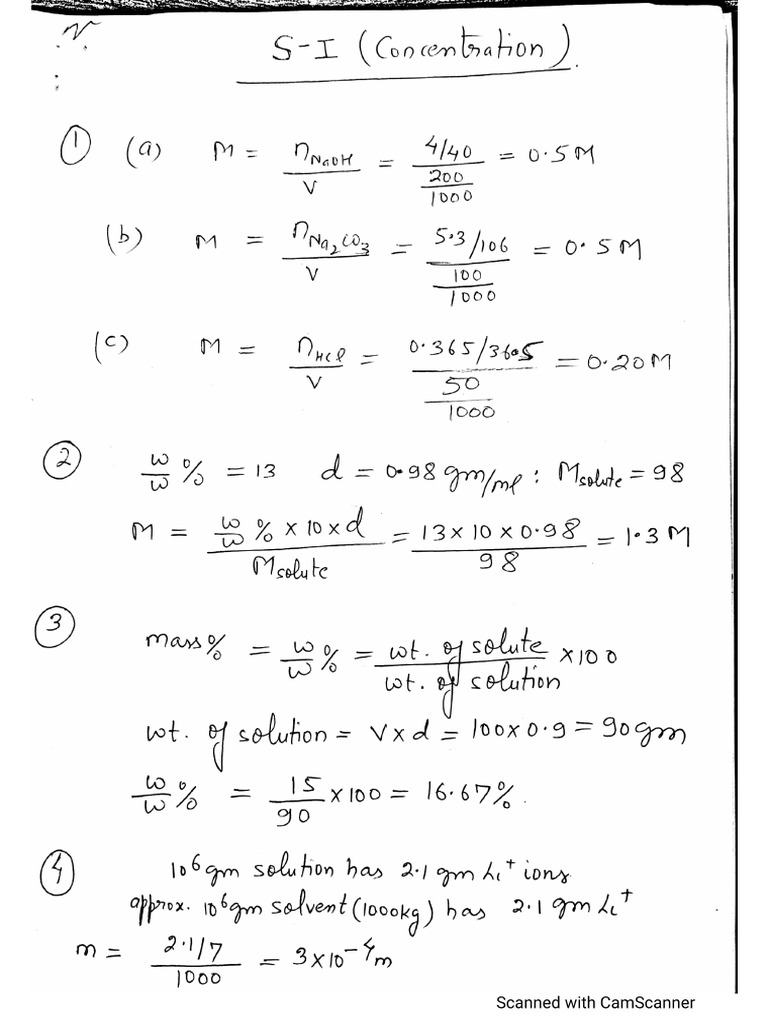 N.
S-I (Concentration).
① (a) M = n_NaOH / V = (4/40) / (200/1000) = 0.5 M
(b) M = n_Na2CO3 / V = (5.3/106) / (100/1000) = 0.5 M
(c) M = n_HCl / V = (0.365/36.5) / (50/1000) = 0.20 M
② w/w % = 13 d = 0.98 gm/ml : Msolute = 98
M = (w/w % × 10 × d) / Msolute = (13 × 10 × 0.98) / 98 = 1.3 M
③ mass% = w/w % = (wt. of solute / wt. of solution) × 100
wt. of solution = V × d = 100 × 0.9 = 90 gm
w/w % = 15/90 × 100 = 16.67%.
④ 10^6 gm solution has 2.1 gm Li+ ions
approx. 10^6 gm solvent (1000kg) has 2.1 gm Li+
m = (2.1/7) / 1000 = 3 × 10^-4 m
Scanned with CamScanner